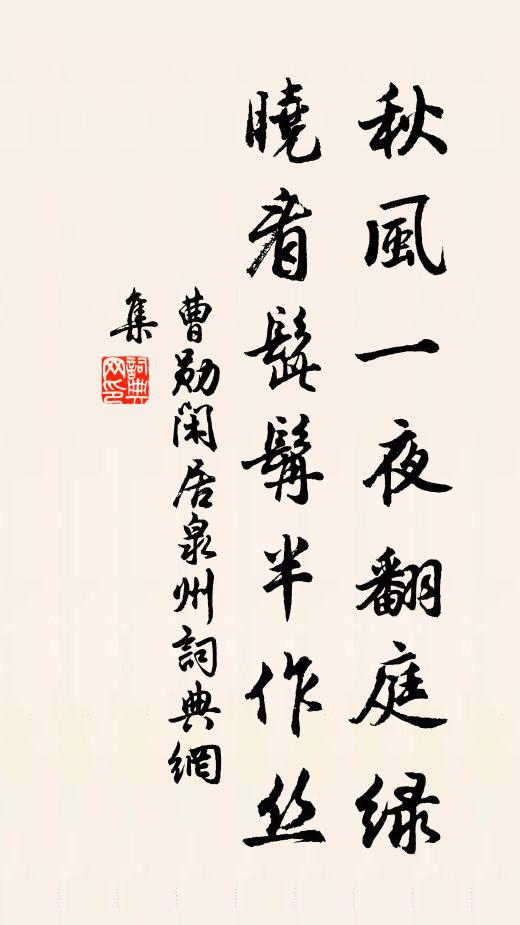 秋風一夜翻庭緑
曉看髭髯半作丝
曹勛閑居泉州詞典網
集
詞典
网印